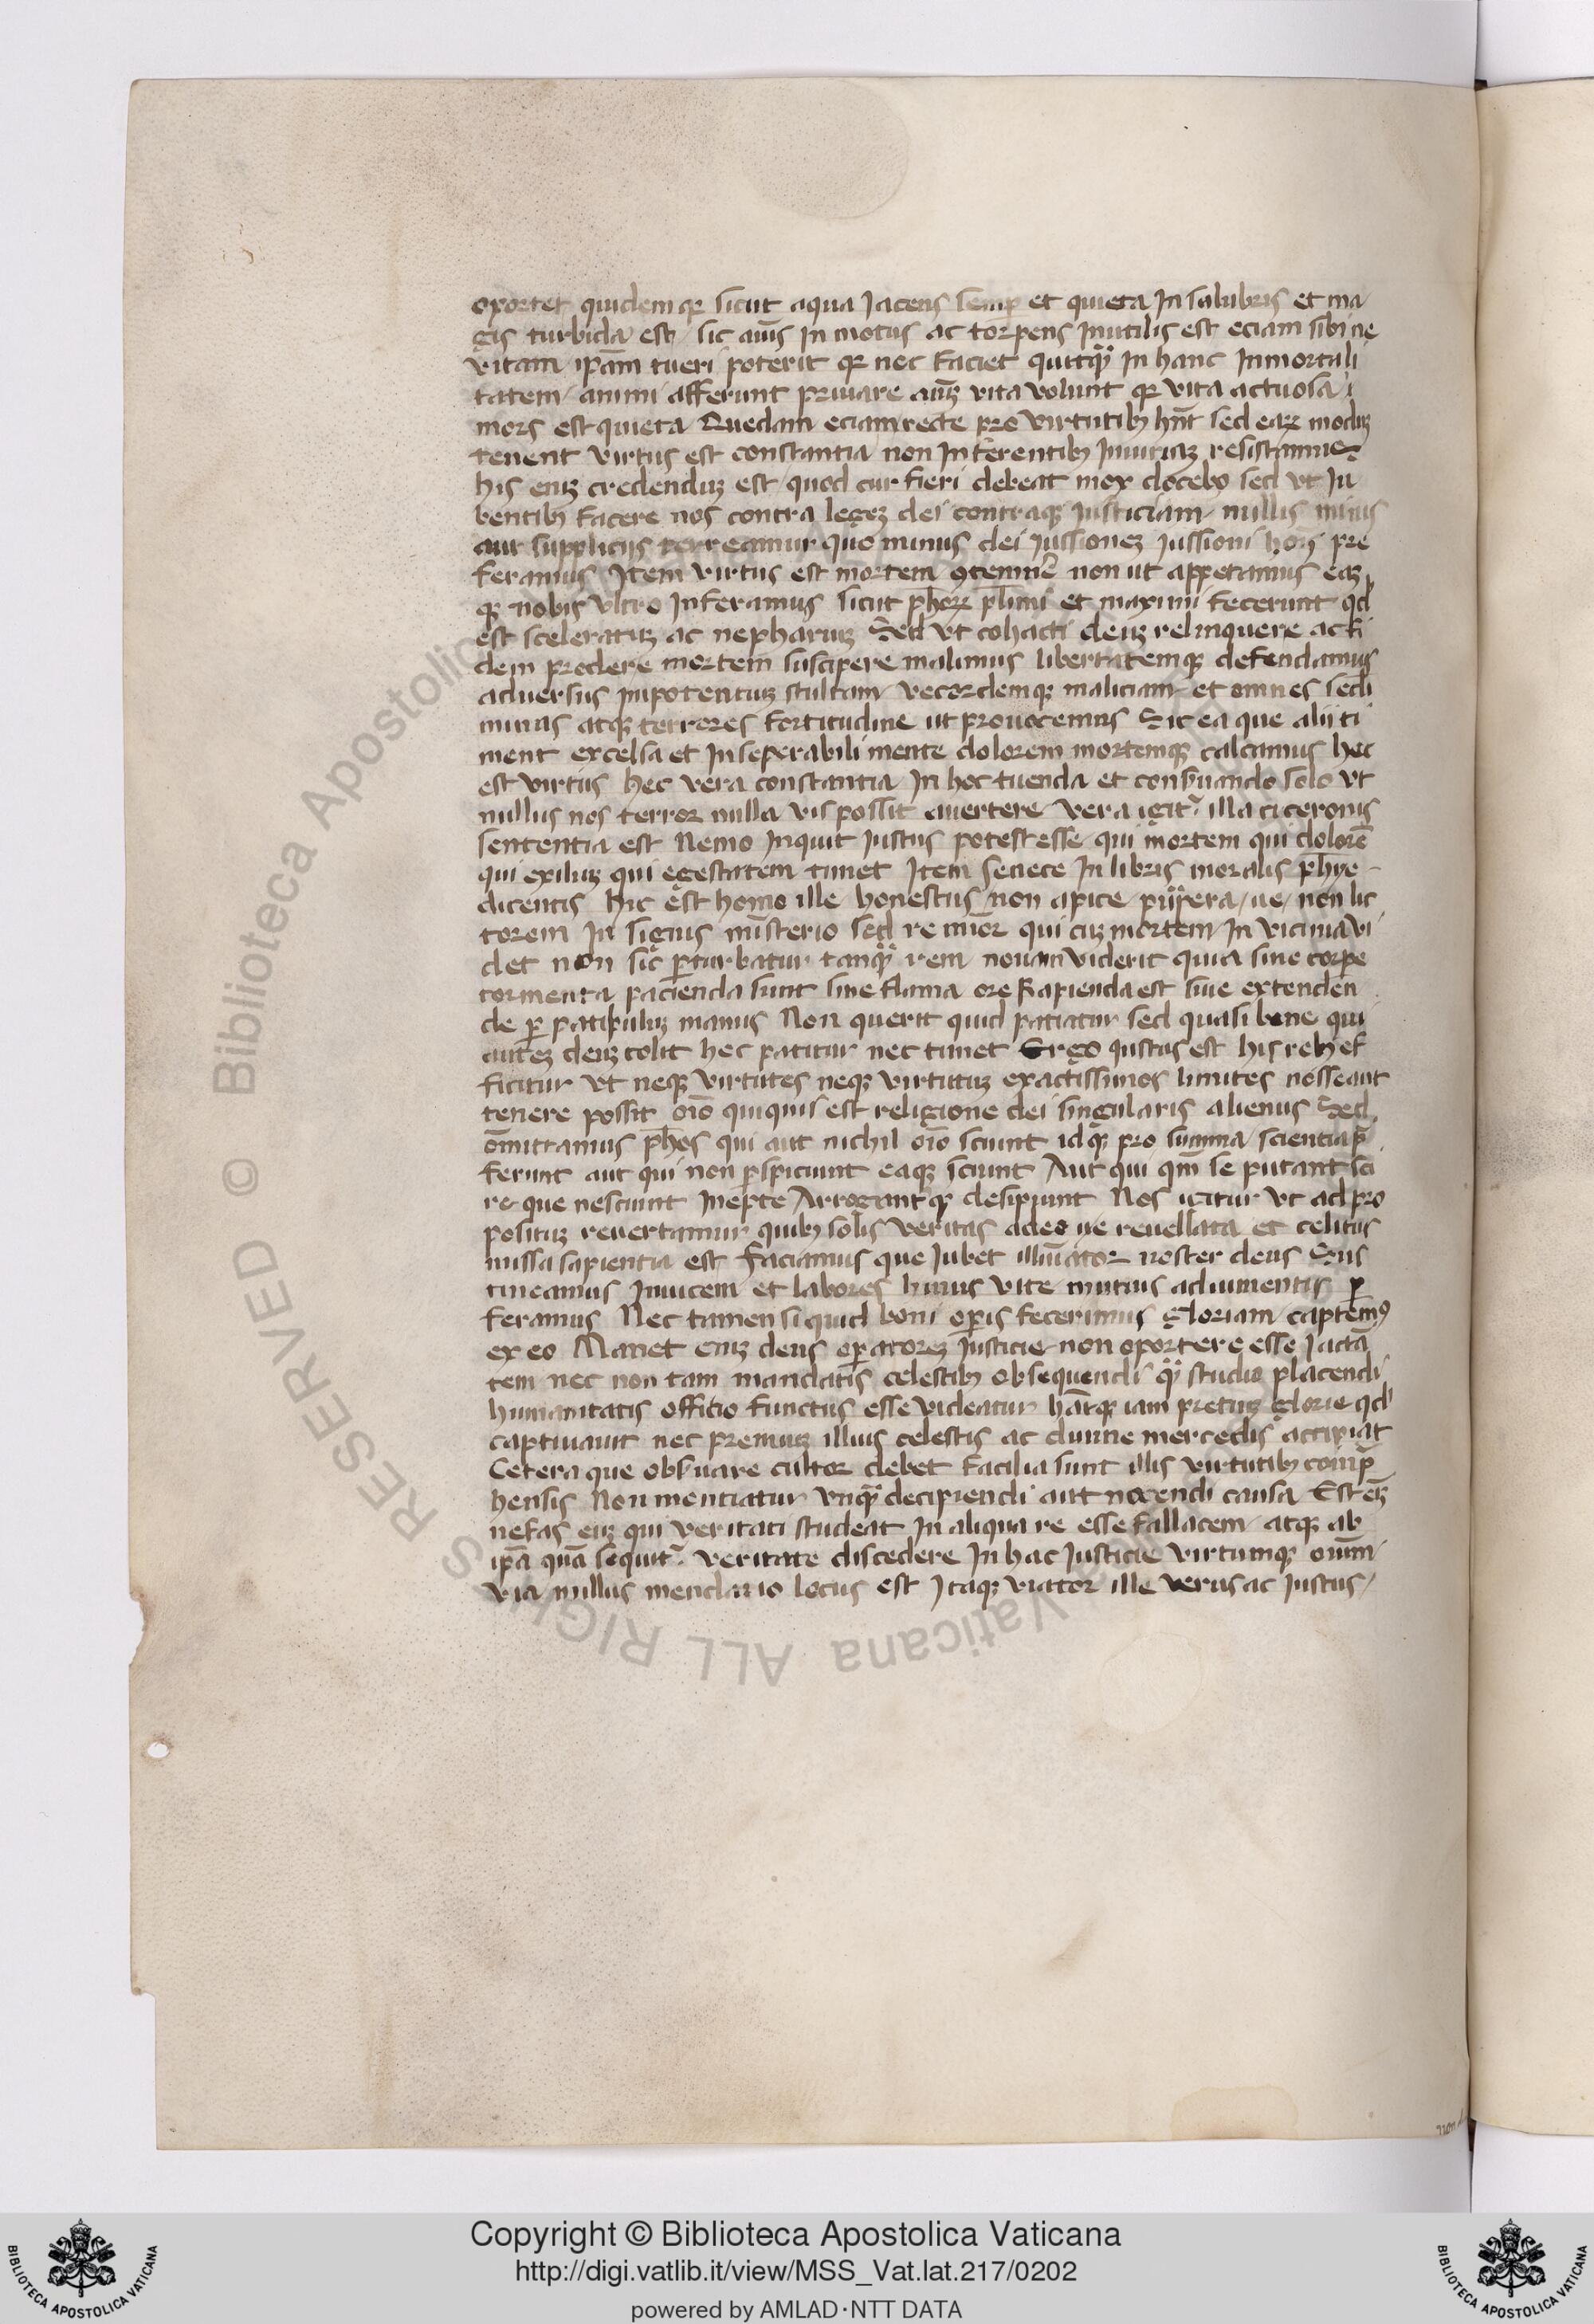 oportet quidem q sicut aqua Jacens semp et quieta In salubris et ma
gis turbida est / sic aius In motus ac torpens Inutilis est eciam sibi ne
vitam ipam tueri poterit q nec faciet In hanc Inmortali
tatem / animi afferunt priuare vita volunt q vita actuosa
mors est quieta Quedam eciam recte pro virtutib hnt sed modu
tenent virtus est constantia non Inferentib Iniuriaz resistamus
his eniz credenduz est / quod cur fieri debeat mox docebo sed vt Ju
bentib facere nos contra legez dei contraq Justiciam / nullis minis
aut supplicijs terreamur quo minus dei Jussionez Jussioni hois pre
feramus Item virtus est mortem 9temnere non ut appetamus eaz
q nobis vltro Inferamus sicut phorz plimi et maximi fecerunt qd
est sceleratuz ac nepharuz Sed vt cohacti deuz relinquere ac fi
dem prodere mortem suscipere malimus libertatemq defendamus
adversus Inpotentuz stultam / vecordemq maliciam / et omnes secli
minas atq terrores fortitudine ut prouocemus Sic ea que alij ti
ment excelsa et Inseperabili mente dolorem mortemq calcamus hec
est virtus hec vera constantia In hoc tuenda et conseruando solo vt
nullus nos terror nulla vis possit auertere / vera igit illa ciceronis
sententia est Nemo Inquit Justus potest esse / qui mortem qui dolorē
qui exiluz qui egestatem timet Item senece In libris moralis phye
dicentis hic est homo ille honestus non apice / ue / non lic
torem In signis misterio sed re qui cuz mortem / In vicinia vi
det non sic perturbatur tanq rem novam viderit quia sine corpe
tormenta pacienda sunt sine flama ore Rapienda est siue extenden
de p patipuluz manus Non querit quid patiatur sed quasi bene qui
autez deuz colit hec patitur nec timet Ergo iustus est his reb ef
ficitur vt neq virtutes neq virtutuz exactissimos limites nosse aut
tenere possit oīo quiquis est religione dei singularis alienus Sed
omittamus phos qui aut nichil oīo sciunt idq pro summa scientia p
ferunt aut qui non pspiciunt eaq sciunt Aut qui qm se putant sci
re que nesciunt Inepte Arroganterq desipiunt Nos igitur vt ad pro
posituz reuertamur quib solis veritas a deo ue reuellata et celitus
missa sapientia est faciamus que Jubet illuīator noster deus Sus
tineamus Inuicem et labores huius vite mutuis adiumentis p
feramus Nec tamen si quid boni opis fecerimus gloriam / captem9
ex eo Manet eniz deus opatorez Justicie non oportere esse Jactā
tem nec non tam mandatis celestib obsequendi studio placendi
humanitatis offitio functus esse videatur hātq iam pretiuz glorie qd
captiuauit nec premiuz illius celestis ac diuine mercedis accipiat
Cetera que obseruare cultor debet facilia sunt illis virtutib comp
hensis Non mentiatur vnq decipiendi aut nocendi causa Est ez
nefas euz qui veritati studeat In aliqua re esse fallacem / atq ab
ipā quā sequit veritate discedere In hac Justicie virtutumq oium
via nullus mendacio locus est Itaq viator ille verus ac Justus /
Copyright © Biblioteca Apostolica Vaticana
http://digi.vatlib.it/view/MSS_Vat.lat.217/0202
powered by AMLAD·NTT DATA